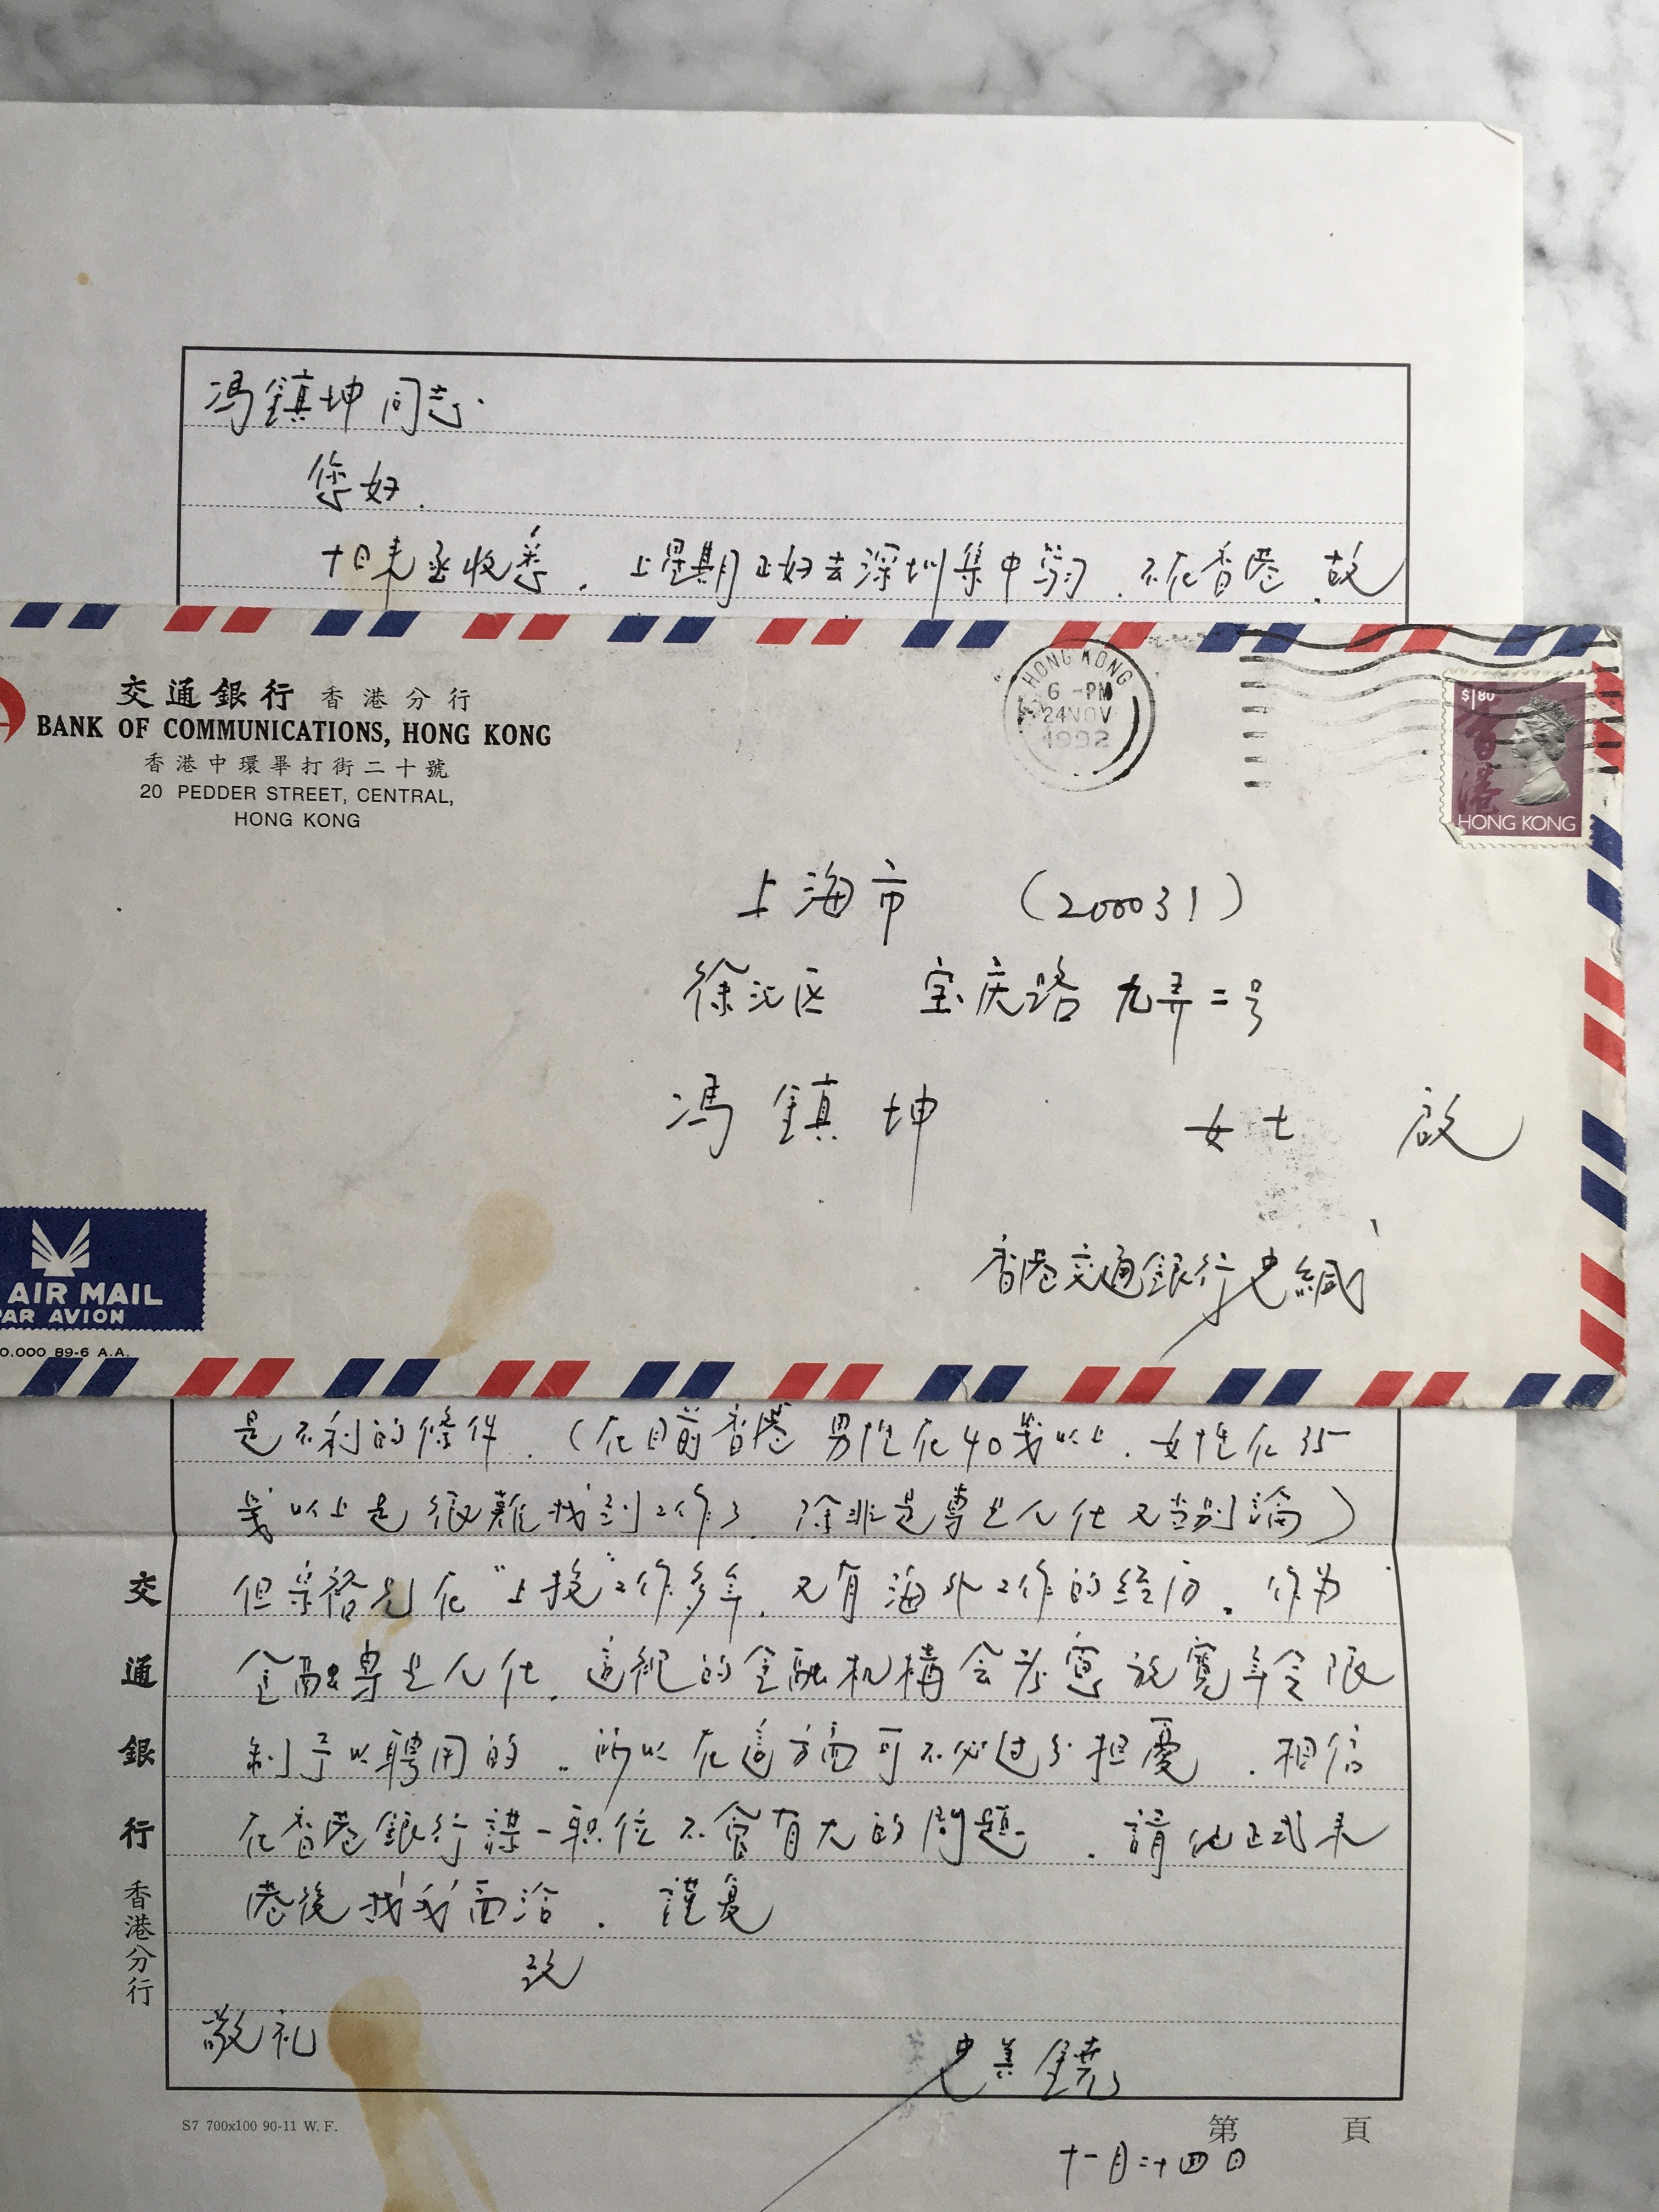 冯鎮坤同志.
您好.
十日来函收悉. 上星期正好去深圳集中学习. 不在香港. 故
交通銀行 香港分行
BANK OF COMMUNICATIONS, HONG KONG
香港中環畢打街二十號
20 PEDDER STREET, CENTRAL,
HONG KONG
HONG KONG
6 -PM
24NOV
1992
$1.80
香港
HONG KONG
上海市 (200031)
徐汇区 宝庆路 九弄二号
冯鎮坤 女士 啟
香港交通銀行史緘
AIR MAIL
PAR AVION
0.000 89-6 A.A.
是不利的條件. (在目前香港 男性在40歲以上. 女性在35
歲以上是很難找到工作了. 除非是專业人仕又当别論)
但宗裕兄在"上投"工作多年. 又有海外工作的经历. 作为
金融專业人仕. 這裡的金融机構会考慮放寬年令限
制予以聘用的. 所以在這方面可不必过分担憂. 相信
在香港銀行謀一职位不會有大的問題. 請他正式来
港後找我面洽. 謹复
致
敬礼
交通銀行 香港分行
S7 700x100 90-11 W. F.
第 頁
十一月二十四日